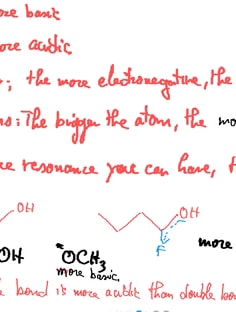 more basic
more acidic
; the more electronegative, the
: The bigger the atom, the mo
resonance you can have,
OH OH
F more
OH OCH3
more basic
bond is more acidic than double bon